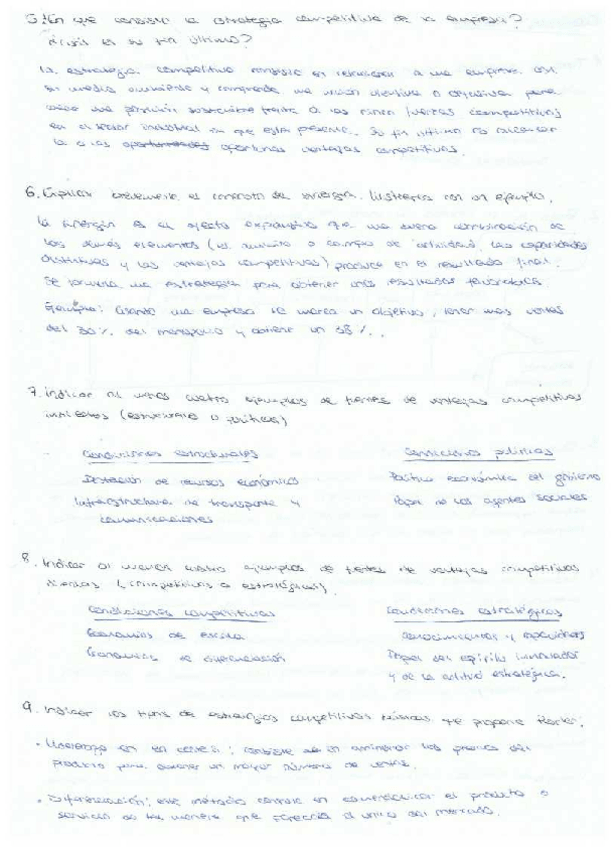 5. ¿En qué consiste la estrategia competitiva de la empresa?
¿Cuál es su fin último?
La estrategia competitiva consiste en relacionar a una empresa con
su medio ambiente y comprende una acción ofensiva o defensiva para
una posición sostenible frente a las cinco fuerzas competitivas
en el sector industrial en que está presente. Su fin último es alcanzar
la o las oportunidades oportunas ventajas competitivas.
6. Explicar brevemente el concepto de sinergia. Ilústrelos con un ejemplo.
La sinergia es el efecto expansivo que una buena combinación de
los demás elementos (el ámbito o campo de actividad, las capacidades
distintivas y las ventajas competitivas) produce en el resultado final.
Se formula una estrategia para obtener unos resultados favorables.
Ejemplo: Cuando una empresa se marca un objetivo, tener más ventas
del 30% del monopolio y obtiene un 38%.
7. Indicar al menos cuatro ejemplos de fuentes de ventajas competitivas
(estructurales o políticas)
Condiciones estructurales
Condiciones políticas
Dotación de recursos económicos
Política económica del gobierno
Infraestructura de transporte y
Papel de los agentes sociales
comunicaciones
8. Indicar al menos cuatro ejemplos de fuentes de ventajas competitivas
(competitivas o estratégicas).
Condiciones competitivas
Condiciones estratégicas
Economías de escala
Conocimientos y
Economías de diferenciación
Papel del espíritu innovador
y de la actitud estratégica.
9. Indicar los tipos de estrategias competitivas básicas que propone Porter:
• Liderazgo en en costes: consiste en aminorar los precios del
producto para obtener un mayor número de ventas.
• Diferenciación: este método consiste en el producto o
servicio de tal manera que parezca el único del mercado.